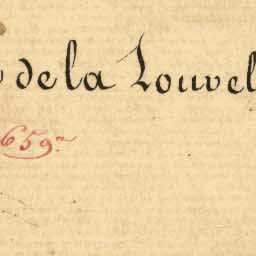 de la Louvel
659.